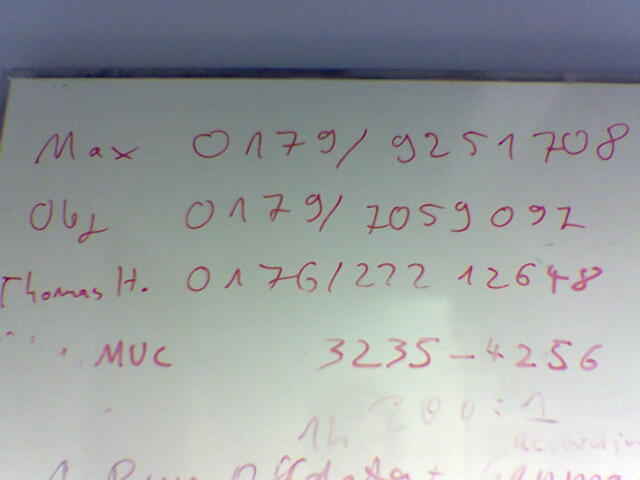 Max 0179/ 9251708
0179/ 2059 092
Thomas H. 0176/222 12648
" " MUC 3235-4256
1h 200:1